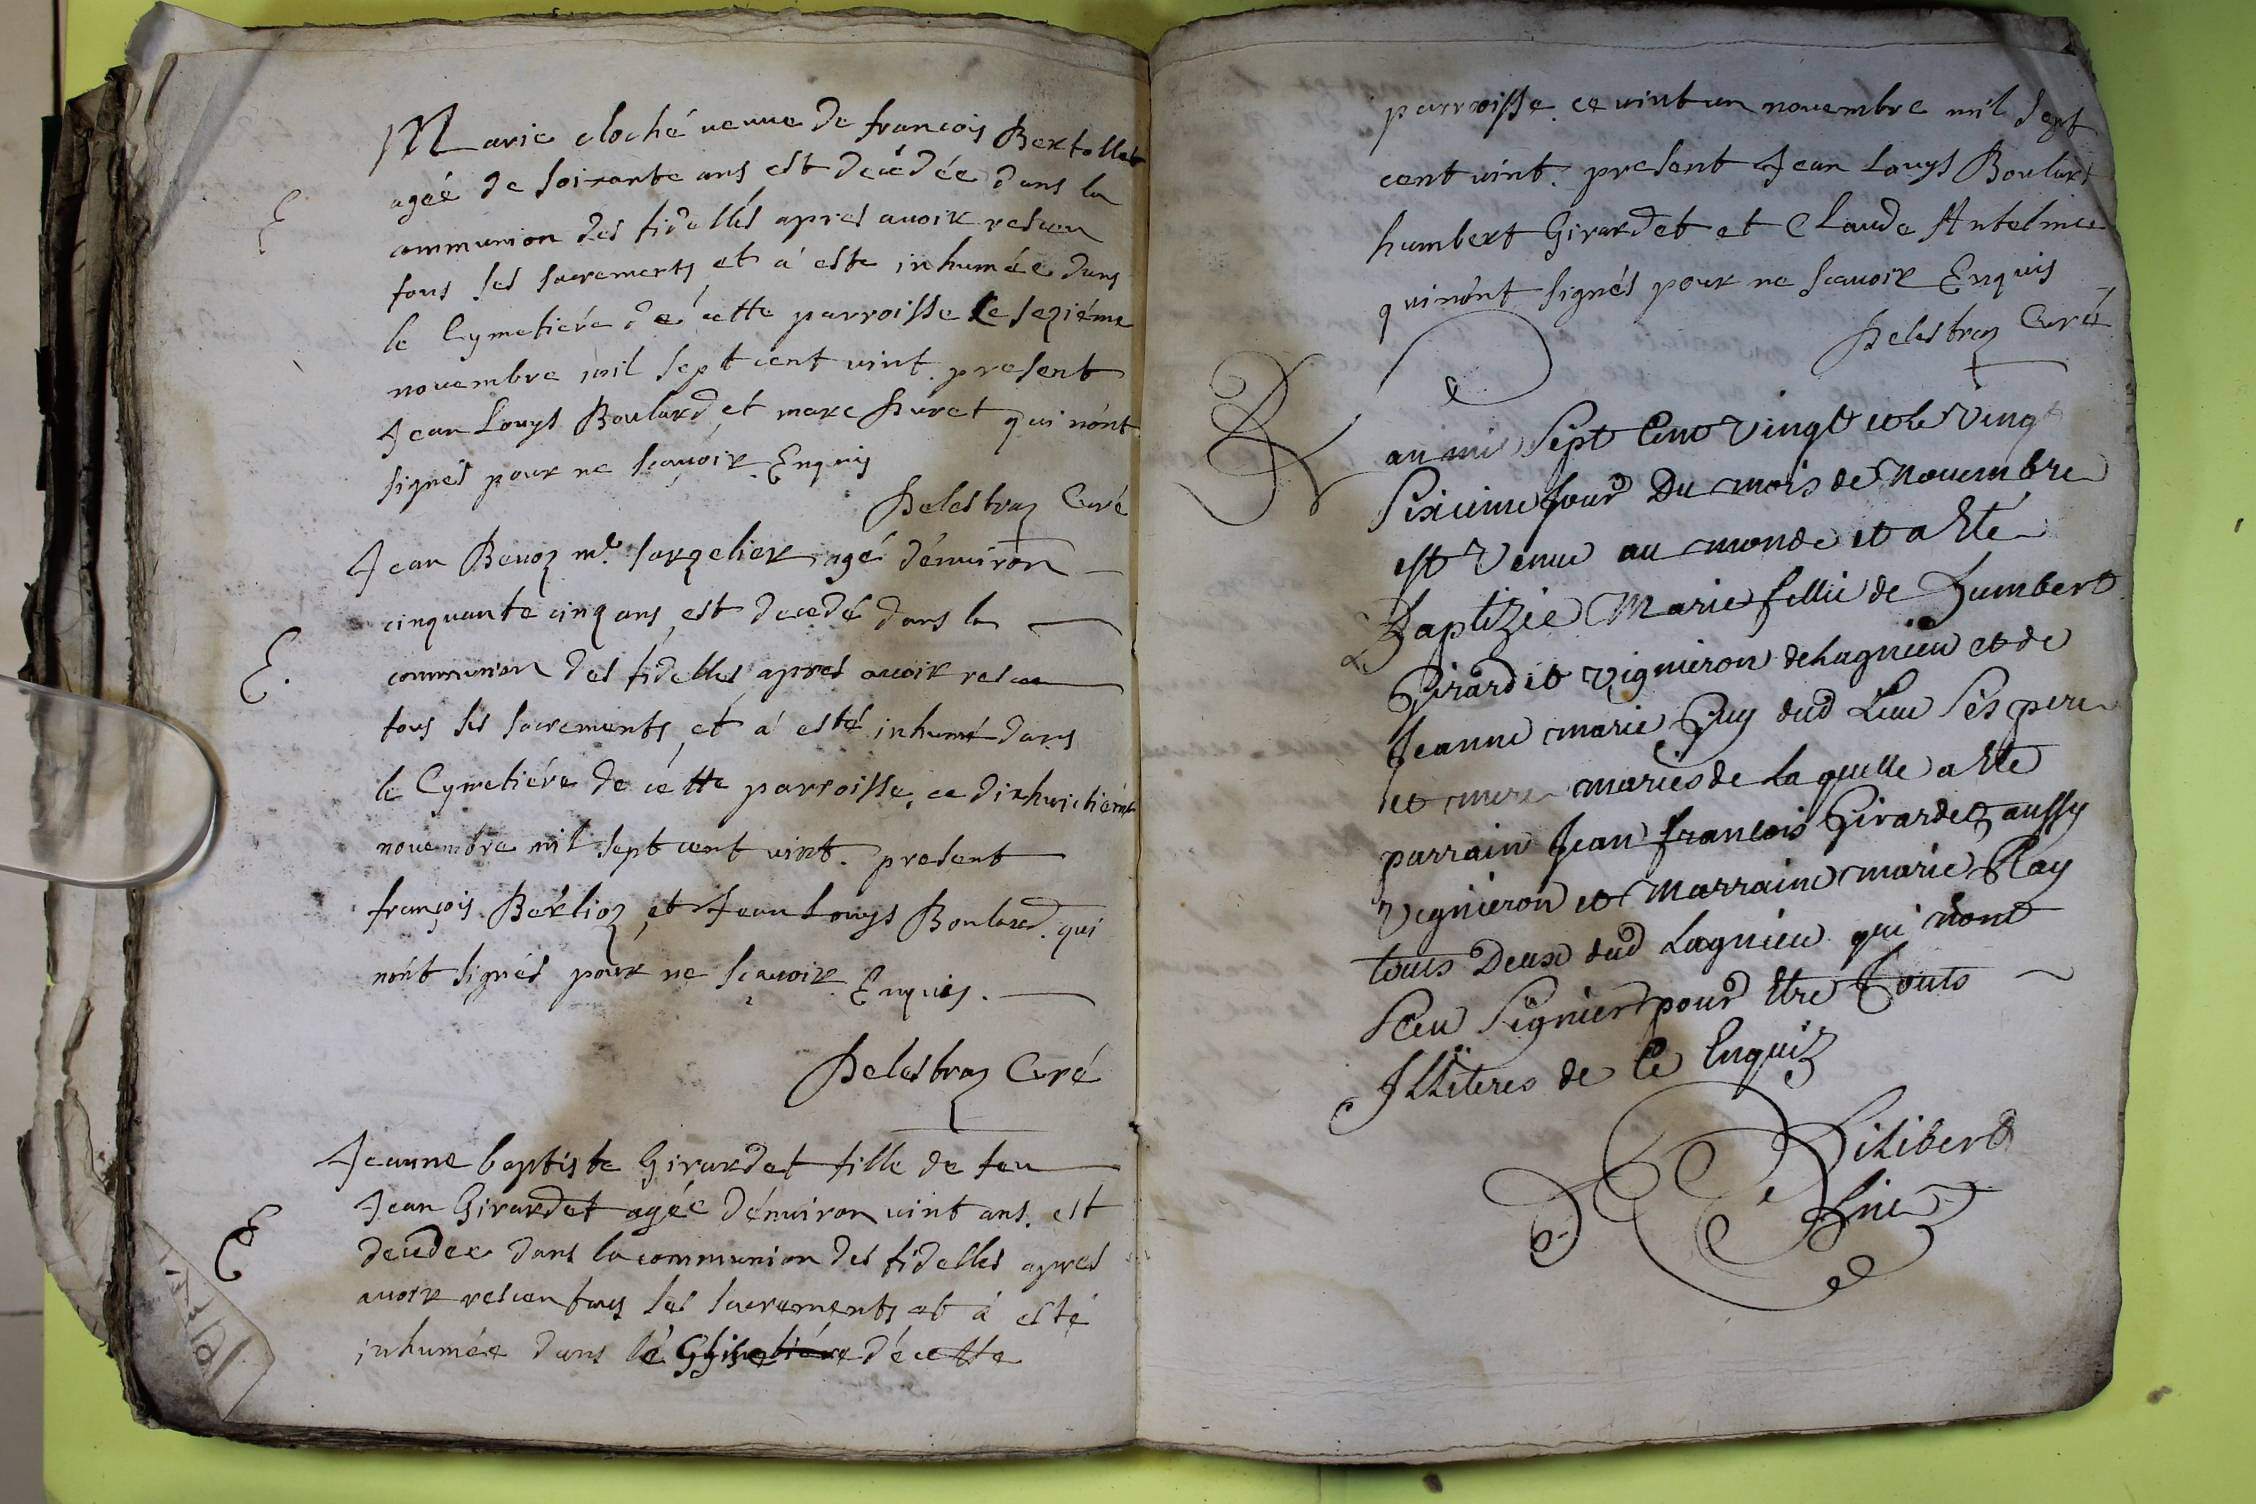 Marie cloché veuve de françois Bertollet
E.
agéé de soixante ans est decédée dans la
communion des fidelles apres auoir resceu
tous les sacrements et à este inhumée dans
le Cymetiére de cette parroisse le seziéme
novembre mil sept cent vint. present
Jean Louys Boulard et marc Huret qui nónt
signés pour ne sçauoir Enquis
Delestraz Curé
Jean Benoz mre. sargetier agé dénuiron
cinquante cinq ans est decedé dans la
E.
communion des fidelles, apres auoir resceu
tous les sacrements et à esté inhumé dans
le Cymetiére de cétte parroisse, ce dixhuictiéme
nouembre mil sept cent vint. present
françois Bérlioz et Jean Louys Boulard. qui
nónt signés pour ne sçauoir Enquis.
Delestraz Curé
Jeanne baptiste Girardet fille de feu
Jean Girardet agée dénuiron vint ans. est
E
decedee dans la communion des fidelles apres
auoir resceu tous les sacrements et à esté
inhumée dans lé décette
parroisse. ce vint un nouembre mil sept
cent vint. present Jean Louys Boulard
humbert Girardet et Claude Antelme
qui nónt signés pour ne sçauoir Enquis
Delestraz Curé
L
an mil Sept Cent Vingt et le Vingt
Sixieme Jour Du mois de Nouembre
est Venue au monde et a Eté
Baptizée Marie fillie de Humbert
Girardet Vigneron de Lagnieu et de
Jeanne marie Guy dud Lieu Ses pere
et mere mariés de Laquelle a Eté
parrain Jean francois Girardet aussy
Vignieron et Marraine Marie Play
tous Deux dud Lagnieu qui nont
Sceu Signier pour Etre touts
Illiteres de Ce Enquis
Filibert